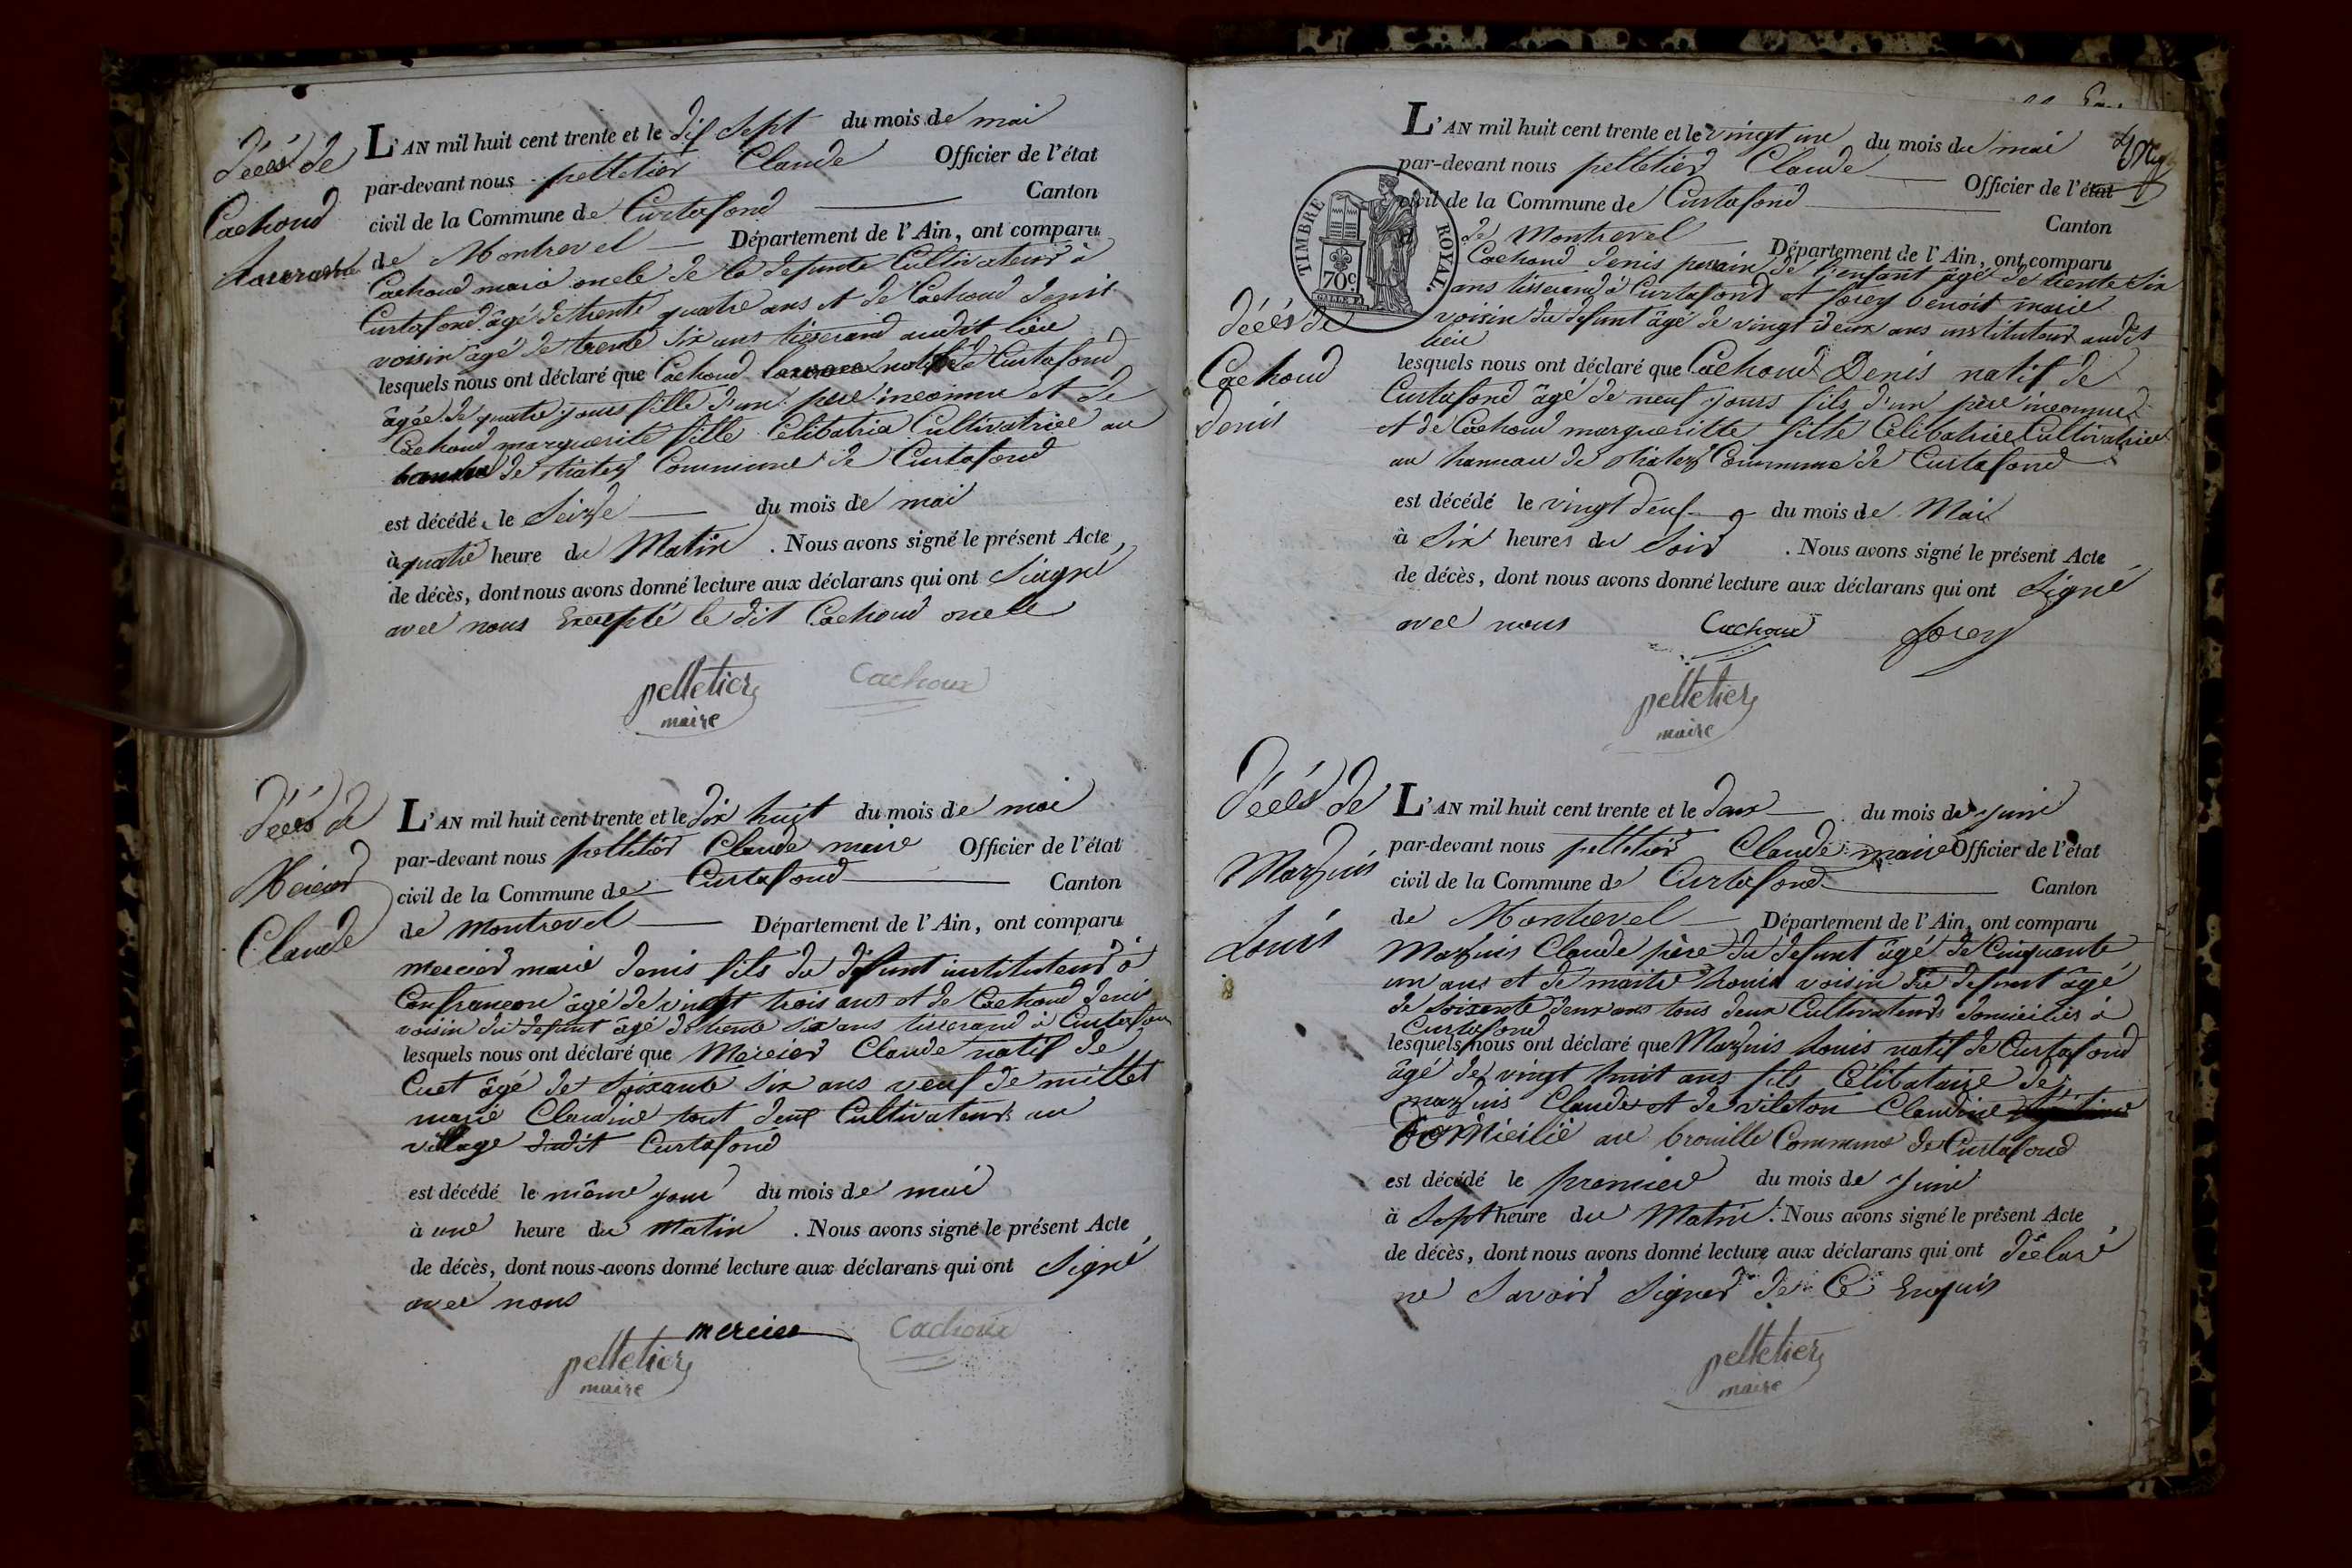 décès de
Cachoud
L'AN mil huit cent trente et le dix sept du mois de mai
par-devant nous pelletier Claude Officier de l'état
civil de la Commune de Curtafond Canton
de Montrevel Département de l'Ain, ont comparu
Cachoud marie oncle de la defunte Cultivateur à
Curtafond âgé de trente quatre ans et de Cachoud denis
voisin âgé de trente six ans tisserand audit lieu
lesquels nous ont déclaré que Cachoud de Curtafond
âgée de quatre jours fille d'un pere inconnu et de
Cachoud marguerite fille Célibatrice Cultivatrice au
de Commune de Curtafond
est décédé le Seize du mois de mai
à quatre heure du Matin . Nous avons signé le présent Acte
de décès, dont nous avons donné lecture aux déclarans qui ont Siugné
avec nous Excepté le dit Cachoud oncle
pelletier Cachoux
maire
décès de
Mercier
Claude
L'AN mil huit cent trente et le dix huit du mois de mai
par-devant nous pelletier Claude maire Officier de l'état
civil de la Commune de Curtafond Canton
de montrevel Département de l'Ain, ont comparu
mercier marie denis fils du défunt instituteur à
Confrancon âgé de vingt trois ans et de Cachoud denis
voisin du defunt âgé de trente six ans tisserand à Curtafon
lesquels nous ont déclaré que Mercier Claude natif de
Cuet âgé de Soixante Six ans veuf de millet
marie Claudine tout deux Cultivateurs au
village dudit Curtafond
est décédé le même jour du mois de mai
à une heure du Matin . Nous avons signé le présent Acte
de décès, dont nous avons donné lecture aux déclarans qui ont Signé
avec nous
mercier Cachoux
pelletier
maire
L'AN mil huit cent trente et le vingt du mois de mai
par-devant nous pelletier Claude Officier de l'état
civil de la Commune de Curtafond Canton
de Montrevel Département de l'Ain, ont comparu
TIMBRE ROYAL.
70c
Cachoud denis parain de l'enfant âgé de trente Six
ans tisserand à Curtafond et forey benoit marie
voisin du defunt âgé de vingt deux ans instituteur audit
lieu
décès de
Cachoud
denis
lesquels nous ont déclaré que Cachoud Denis natif de
Curtafond âgé de neuf jours fils d'un père inconnue
et de Cachoud margueritte fille Célibatrice Cultivatrice
au hameau de Commune de Curtafond
est décédé le vingt deux du mois de Mai
à Six heures du Soir . Nous avons signé le présent Acte
de décès, dont nous avons donné lecture aux déclarans qui ont Signé
avec nous Cachoux forey
pelletier
maire
décès de
Marquis
Louis
L'AN mil huit cent trente et le deux du mois de juin
par-devant nous pelletier Claude maire Officier de l'état
civil de la Commune de Curtafond Canton
de Montrevel Département de l'Ain, ont comparu
Marquis Claude père du defunt âgé de Cinquante
un ans et de maitre Louis voisin du defunt âgé
de Soixante deux ans tous deux Cultivateurs domiciliés à
Curtafond
lesquels nous ont déclaré que Marquis Louis natif de Curtafond
âgé de vingt huit ans fils Célibataire de
marquis Claude et de vileton Claudine
Domicilié au brouille Commune de Curtafond
est décédé le premier du mois de juin
à Sept heure du Matin . Nous avons signé le présent Acte
de décès, dont nous avons donné lecture aux déclarans qui ont déclaré
ne Savoir Signer de Ce Enquis
pelletier
maire